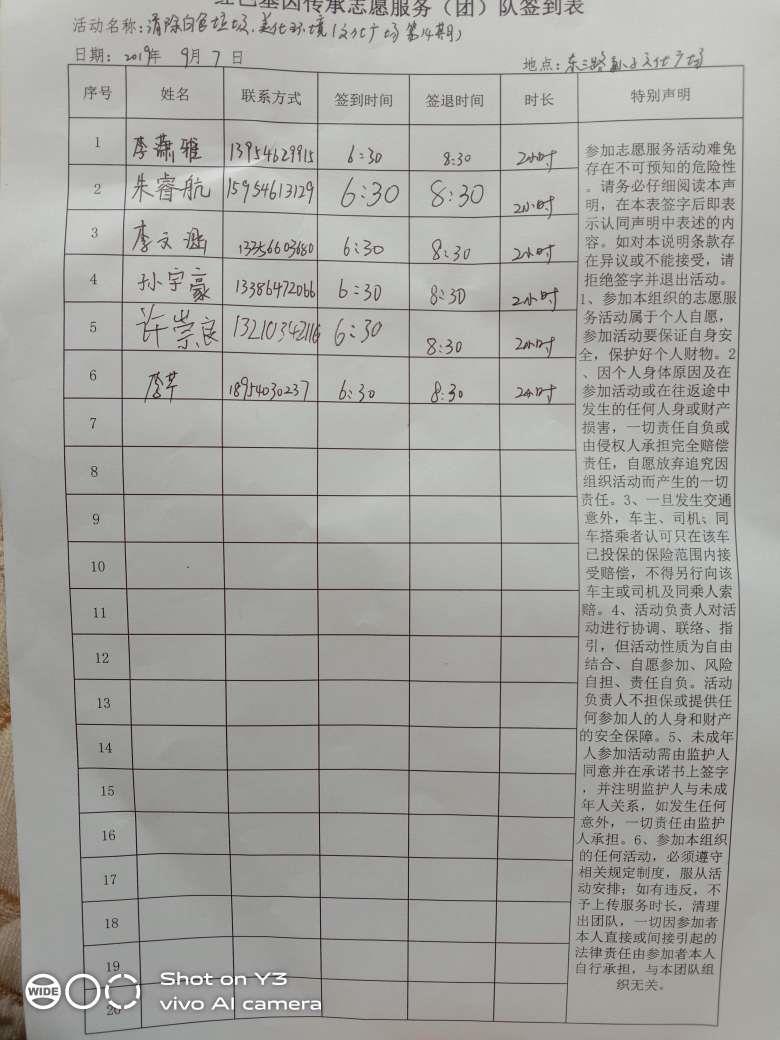 红色基因传承志愿服务（团）队签到表
活动名称：清除白色垃圾，美化环境（文化广场第14期）
日期：2019年 9月 7 日
地点：东三路 文化广场
序号 姓名 联系方式 签到时间 签退时间 时长 特别声明
1 李潇雅 13954629915 6:30 8:30 2小时
2 朱睿航 15954613129 6:30 8:30 2小时
3 李文 13356603680 6:30 8:30 2小时
4 孙宇豪 13386472066 6:30 8:30 2小时
5 许崇良 13210342116 6:30 8:30 2小时
6 李芹 18954030237 6:30 8:30 2小时
7
8
9
10
11
12
13
14
15
16
17
18
19
20
参加志愿服务活动难免
存在不可预知的危险性
。请务必仔细阅读本声
明，在本表签字后即表
示认同声明中表述的内
容。如对本说明条款存
在异议或不能接受，请
拒绝签字并退出活动。
1、参加本组织的志愿服
务活动属于个人自愿，
参加活动要保证自身安
全，保护好个人财物。2
、因个人身体原因及在
参加活动或在往返途中
发生的任何人身或财产
损害，一切责任自负或
由侵权人承担完全赔偿
责任，自愿放弃追究因
组织活动而产生的一切
责任。3、一旦发生交通
意外，车主、司机、同
车搭乘者认可只在该车
已投保的保险范围内接
受赔偿，不得另行向该
车主或司机及同乘人索
赔。4、活动负责人对活
动进行协调、联络、指
引，但活动性质为自由
结合、自愿参加、风险
自担、责任自负。活动
负责人不担保或提供任
何参加人的人身和财产
的安全保障。5、未成年
人参加活动需由监护人
同意并在承诺书上签字
，并注明监护人与未成
年人关系，如发生任何
意外，一切责任由监护
人承担。6、参加本组织
的任何活动，必须遵守
相关规定制度，服从活
动安排；如有违反，不
予上传服务时长，清理
出团队，一切因参加者
本人直接或间接引起的
法律责任由参加者本人
自行承担，与本团队组
织无关。
WIDE
Shot on Y3
vivo AI camera